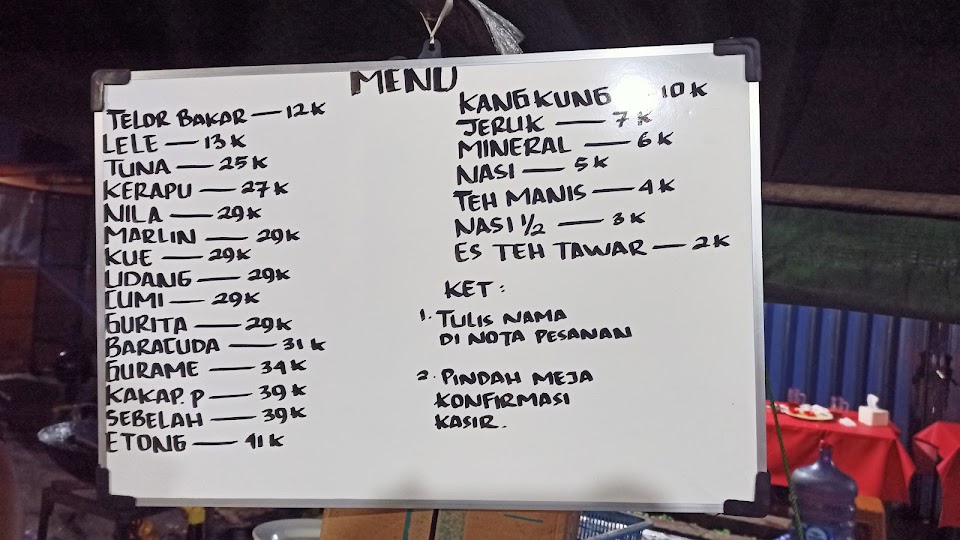 MENU
TELOR BAKAR — 12K
LELE — 13K
TUNA — 25K
KERAPU — 27K
NILA — 29K
MARLIN — 29K
KUE — 29K
UDANG — 29K
CUMI — 29K
GURITA — 29K
BARACUDA — 31K
GURAME — 34K
KAKAP. P — 39K
SEBELAH — 39K
ETONG — 41K
KANGKUNG — 10K
JERUK — 7K
MINERAL — 6K
NASI — 5K
TEH MANIS — 4K
NASI 1/2 — 3K
ES TEH TAWAR — 2K
KET :
1. TULIS NAMA
DI NOTA PESANAN
2. PINDAH MEJA
KONFIRMASI
KASIR.